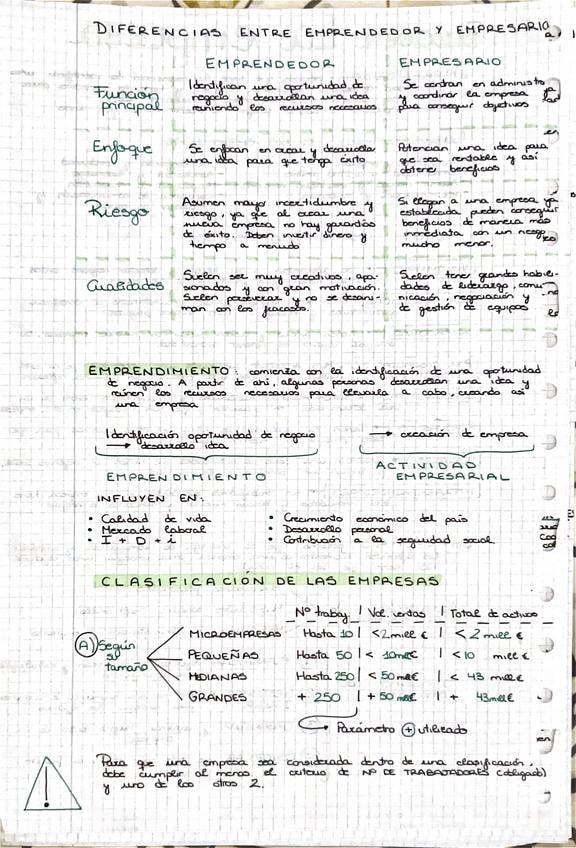 DIFERENCIAS ENTRE EMPRENDEDOR Y EMPRESARIO
EMPRENDEDOR EMPRESARIO
Función principal
Identifican una oportunidad de
negocio y desarrollan una idea
reuniendo los recursos necesarios
Se centran en administrar
y coordinar la empresa
para conseguir objetivos
Enfoque
Se enfocan en crear y desarrollar
una idea para que tenga éxito
Potencian una idea para
que sea rentable y así
obtener beneficios
Riesgo
Asumen mayor incertidumbre y
riesgo, ya que al crear una
nueva empresa no hay garantías
de éxito. Deben invertir dinero y
tiempo a menudo
Si llegan a una empresa ya
establecida, pueden conseguir
beneficios de manera más
inmediata con un riesgo
mucho menor.
Cualidades
Suelen ser muy creativos, apa-
sionados y con gran motivación.
Suelen perseverar y no se desani-
man con los fracasos.
Suelen tener grandes habili-
dades de liderazgo, comu-
nicación, negociación y
de gestión de equipos
EMPRENDIMIENTO: comienza con la identificación de una oportunidad
de negocio. A partir de ahí, algunas personas desarrollan una idea y
reúnen los recursos necesarios para llevarla a cabo, creando así
una empresa
Identificación oportunidad de negocio
→ desarrollo idea
→ creación de empresa
EMPRENDIMIENTO
ACTIVIDAD
EMPRESARIAL
INFLUYEN EN:
• Calidad de vida
• Mercado laboral
• I + D + i
• Crecimiento económico del país
• Desarrollo personal
• Contribución a la seguridad social
CLASIFICACIÓN DE LAS EMPRESAS
Nº trabaj. | Vol. ventas | Total de activos
A Según
su
tamaño
MICROEMPRESAS Hasta 10 | <2 mill € | < 2 mill €
PEQUEÑAS Hasta 50 | < 10 mill € | < 10 mill €
MEDIANAS Hasta 250 | < 50 mill € | < 43 mill €
GRANDES + 250 | + 50 mill € | + 43 mill €
Parámetro + utilizado
!
Para que una empresa sea considerada dentro de una clasificación,
debe cumplir al menos el criterio de Nº DE TRABAJADORES (obligado)
y uno de los otros 2.